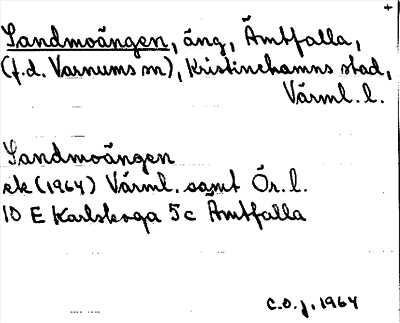 +
Sandmoängen, äng, Ämtfalla,
(f.d. Varnums sn), Kristinehamns stad,
Värml. l.
Sandmoängen
ek (1964) Värml. samt Ör. l.
10 E Karlskoga 5c Ämtfalla
C.O.J. 1964